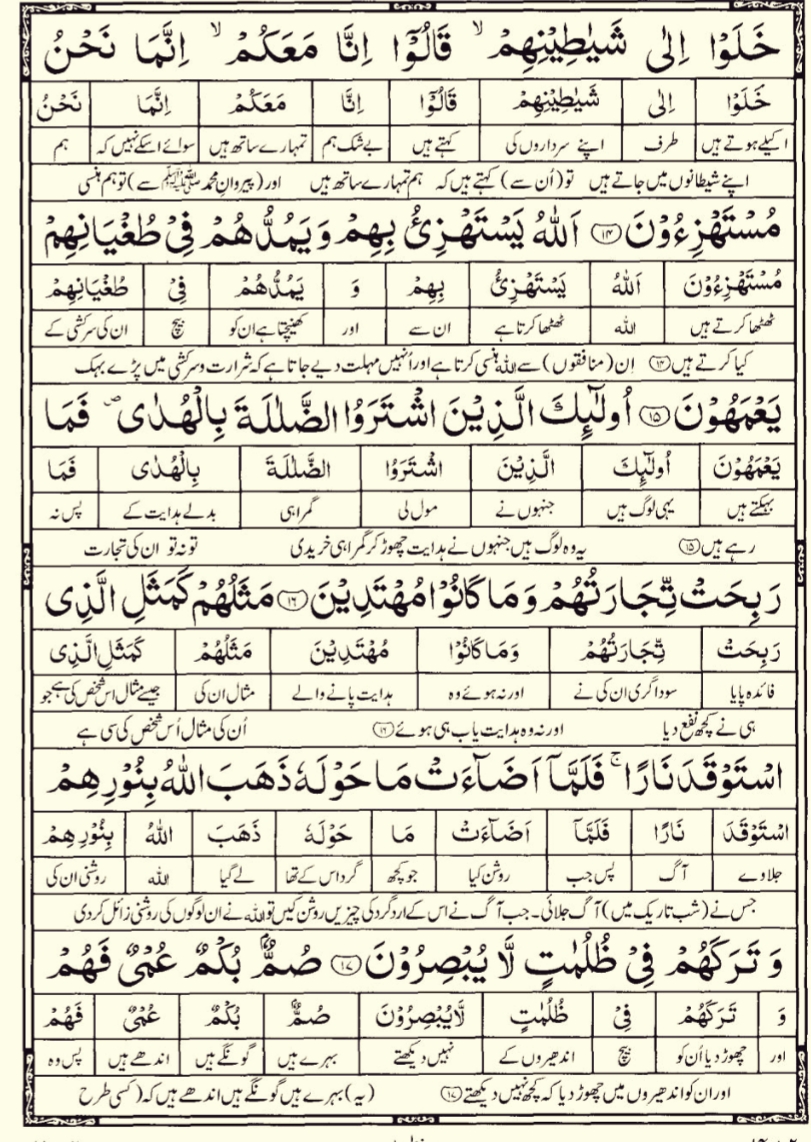 خَلَوْا اِلٰى شَيٰطِيْنِهِمْ ۙ قَالُوْٓا اِنَّا مَعَكُمْ ۙ اِنَّمَا نَحْنُ
خَلَوْا اِلٰى شَيٰطِيْنِهِمْ قَالُوْٓا اِنَّا مَعَكُمْ اِنَّمَا نَحْنُ
اکیلے ہوتے ہیں طرف اپنے سرداروں کی کہتے ہیں بے شک ہم تمہارے ساتھ ہیں سوائے اسکے نہیں کہ ہم
اپنے شیطانوں میں جاتے ہیں تو (اُن سے) کہتے ہیں کہ ہم تمہارے ساتھ ہیں اور (پیروانِ محمد ﷺ سے) تو ہم ہنسی
مُسْتَهْزِءُوْنَ ۝۱۴ اَللّٰهُ يَسْتَهْزِئُ بِهِمْ وَيَمُدُّهُمْ فِيْ طُغْيَانِهِمْ
مُسْتَهْزِءُوْنَ اَللّٰهُ يَسْتَهْزِئُ بِهِمْ وَ يَمُدُّهُمْ فِيْ طُغْيَانِهِمْ
ٹھٹھا کرتے ہیں اللہ ٹھٹھا کرتا ہے ان سے اور کھینچتا ہے ان کو بیچ ان کی سرکشی کے
کیا کرتے ہیں ۝۱۴ اِن (منافقوں) سے اللہ ہنسی کرتا ہے اور اُنہیں مہلت دیے جاتا ہے کہ شرارت و سرکشی میں پڑے بہک
يَعْمَهُوْنَ ۝۱۵ اُولٰٓئِكَ الَّذِيْنَ اشْتَرَوُا الضَّلٰلَةَ بِالْهُدٰى ۪ فَمَا
يَعْمَهُوْنَ اُولٰٓئِكَ الَّذِيْنَ اشْتَرَوُا الضَّلٰلَةَ بِالْهُدٰى فَمَا
بہکتے ہیں یہی لوگ ہیں جنہوں نے مول لی گمراہی بدلے ہدایت کے پس نہ
رہے ہیں ۝۱۵ یہ وہ لوگ ہیں جنہوں نے ہدایت چھوڑ کر گمراہی خریدی تو نہ تو ان کی تجارت
رَبِحَتْ تِّجَارَتُهُمْ وَمَا كَانُوْا مُهْتَدِيْنَ ۝۱۶ مَثَلُهُمْ كَمَثَلِ الَّذِى
رَبِحَتْ تِّجَارَتُهُمْ وَمَا كَانُوْا مُهْتَدِيْنَ مَثَلُهُمْ كَمَثَلِ الَّذِى
فائدہ پایا سوداگری ان کی نے اور نہ ہوئے وہ ہدایت پانے والے مثال ان کی جیسے مثال اس شخص کی ہے جو
ہی نے کچھ نفع دیا اور نہ وہ ہدایت یاب ہی ہوئے ۝۱۶ اُن کی مثال اُس شخص کی سی ہے
اسْتَوْقَدَ نَارًا ۚ فَلَمَّآ اَضَآءَتْ مَا حَوْلَهٗ ذَهَبَ اللّٰهُ بِنُوْرِهِمْ
اسْتَوْقَدَ نَارًا فَلَمَّآ اَضَآءَتْ مَا حَوْلَهٗ ذَهَبَ اللّٰهُ بِنُوْرِهِمْ
جلاوے آگ پس جب روشن کیا جو کچھ گرد اس کے تھا لے گیا اللہ روشنی ان کی
جس نے (شب تاریک میں) آگ جلائی۔ جب آگ نے اس کے اردگرد کی چیزیں روشن کیں تو اللہ نے ان لوگوں کی روشنی زائل کر دی
وَ تَرَكَهُمْ فِيْ ظُلُمٰتٍ لَّا يُبْصِرُوْنَ ۝۱۷ صُمٌّۢ بُكْمٌ عُمْىٌ فَهُمْ
وَ تَرَكَهُمْ فِيْ ظُلُمٰتٍ لَّا يُبْصِرُوْنَ صُمٌّۢ بُكْمٌ عُمْىٌ فَهُمْ
اور چھوڑ دیا اُن کو بیچ اندھیروں کے نہیں دیکھتے بہرے ہیں گونگے ہیں اندھے ہیں پس وہ
اور ان کو اندھیروں میں چھوڑ دیا کہ کچھ نہیں دیکھتے ۝۱۷ (یہ) بہرے ہیں گونگے ہیں اندھے ہیں کہ (کسی طرح